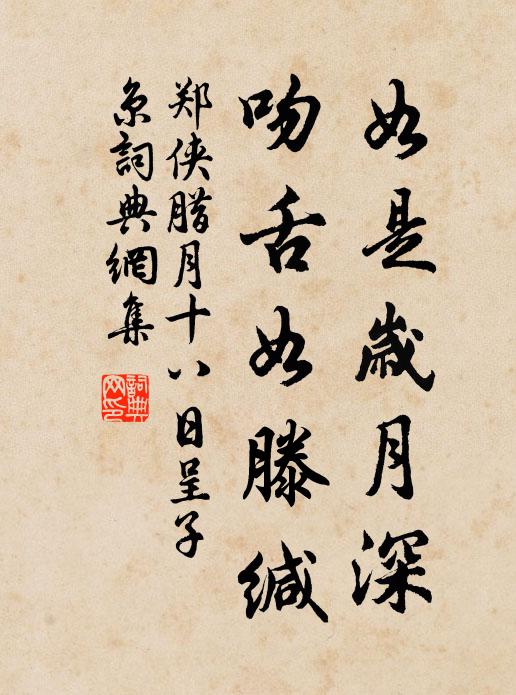 如是歲月深
吻舌如滕緘
郑侠腊月十八日呈子
京詞典網集
詞典
网印